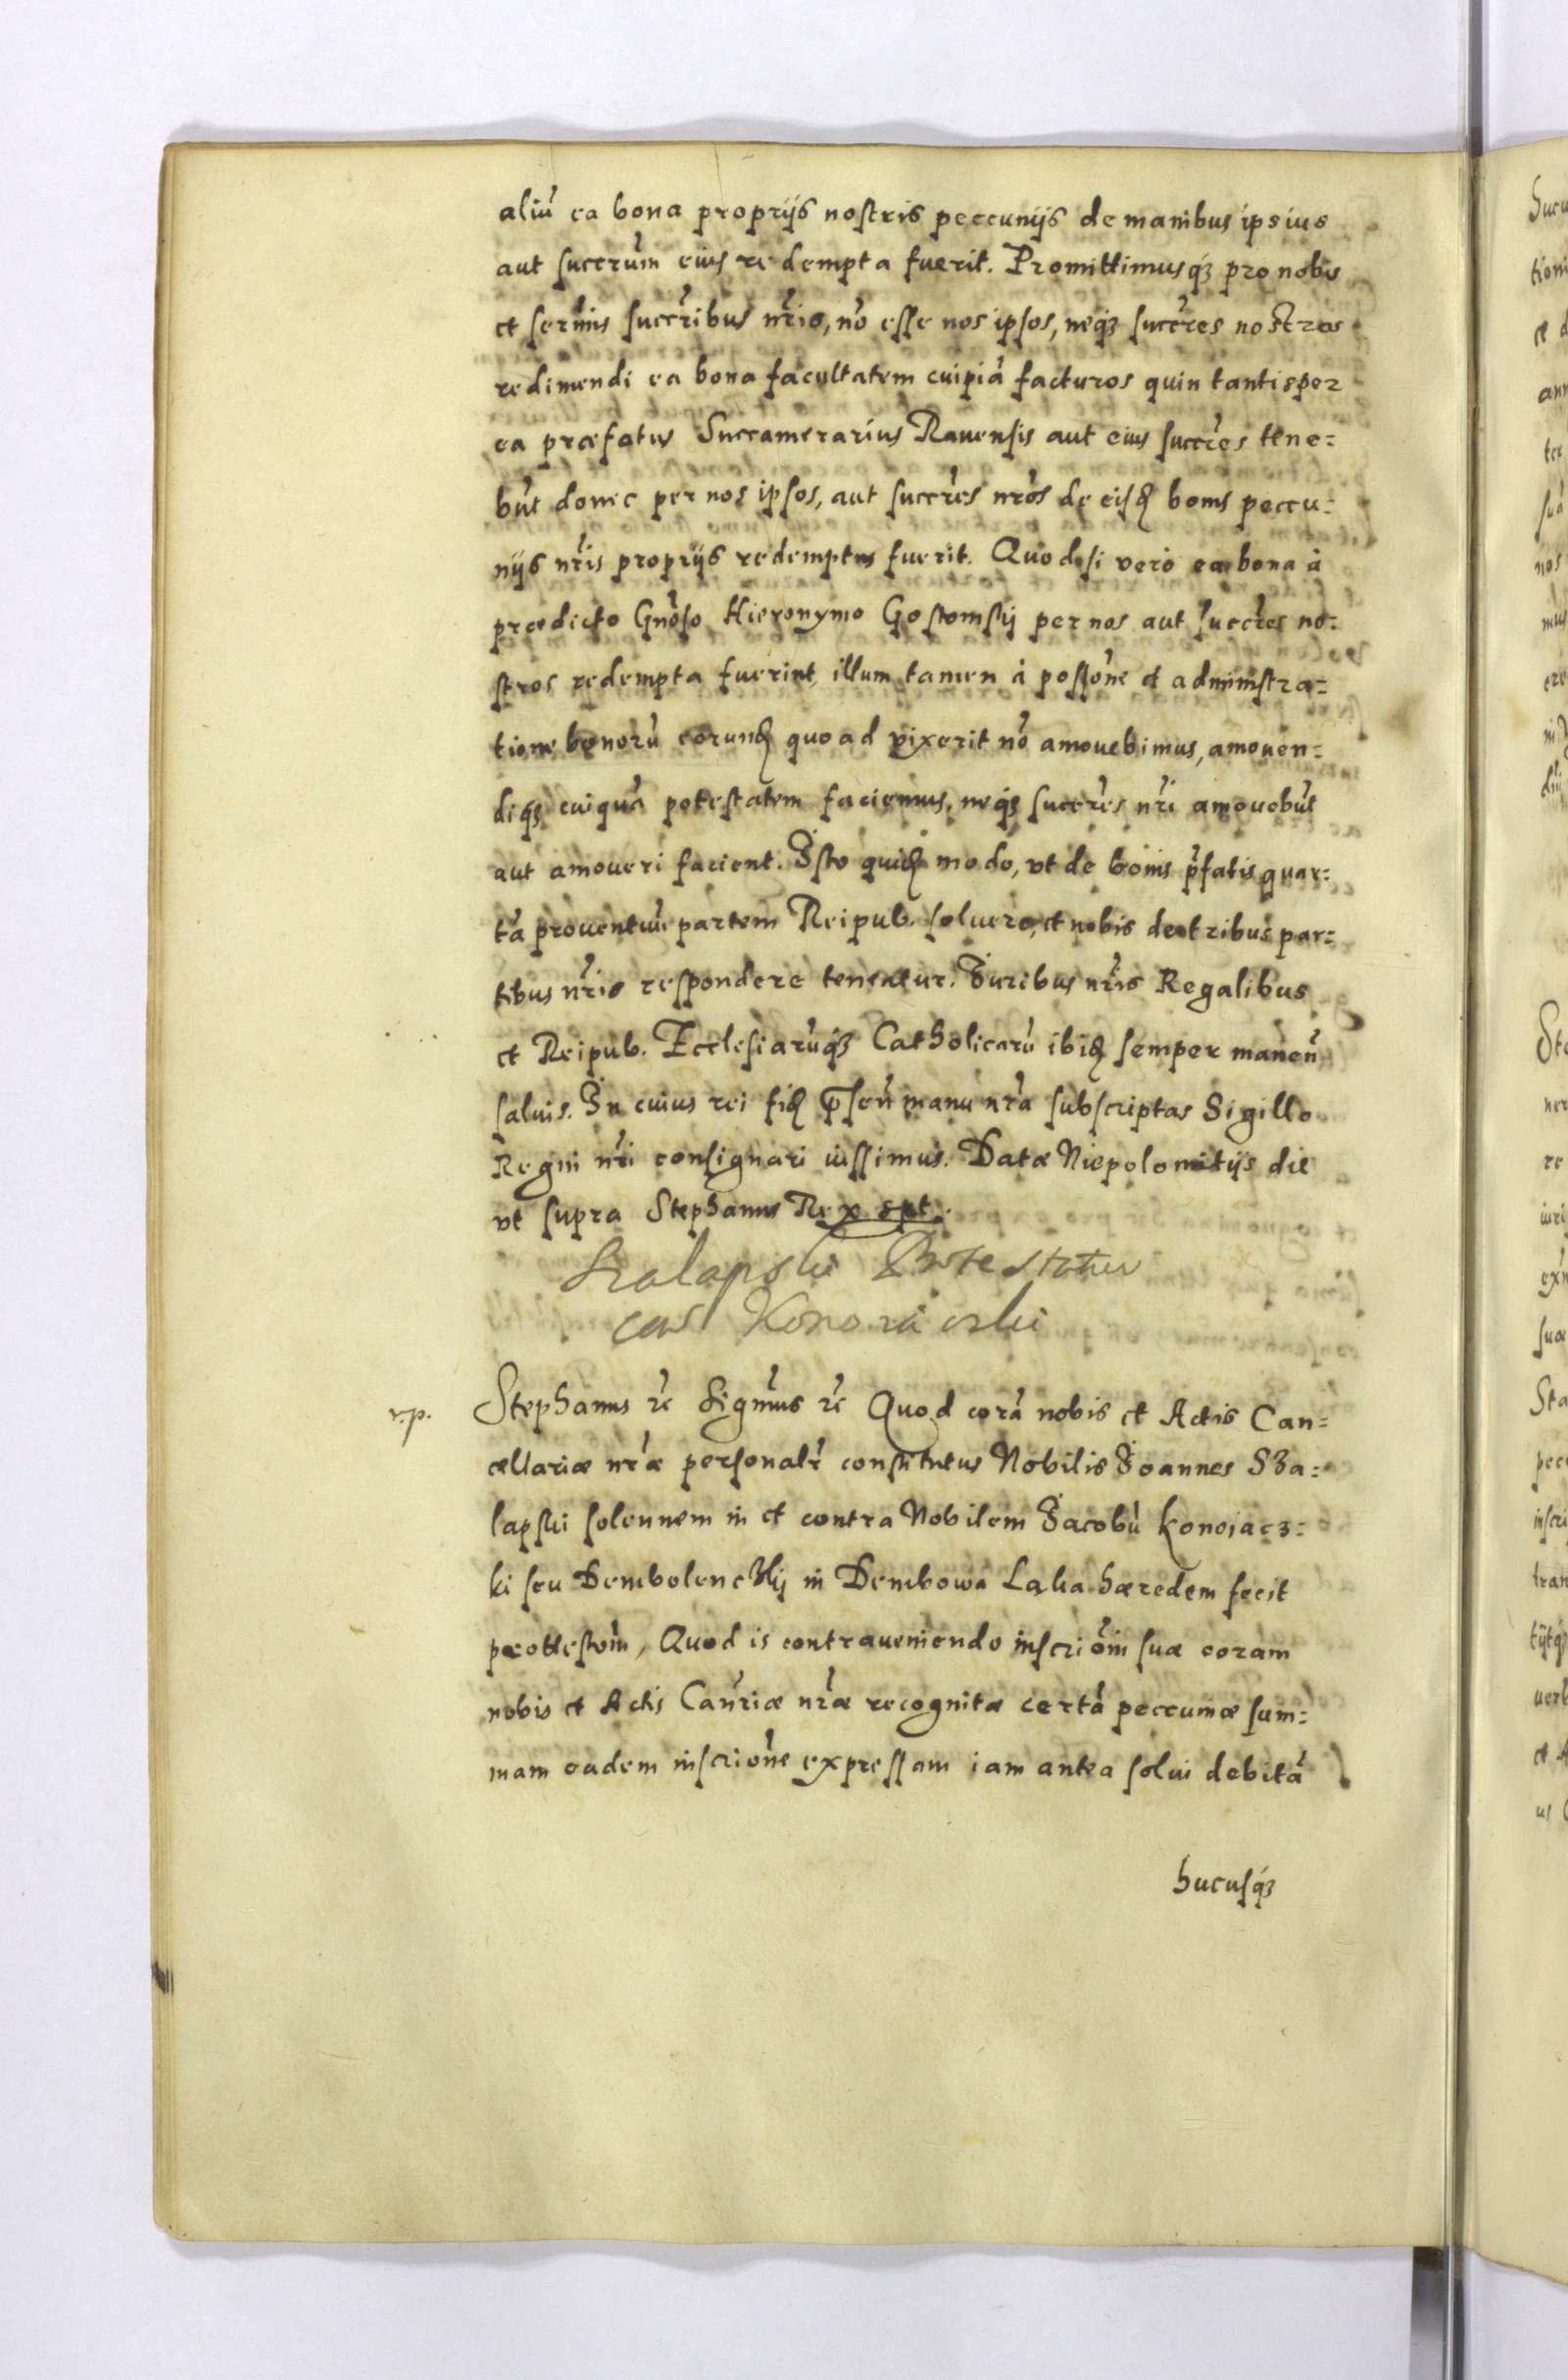 aliũ ea bona proprijs nostris peccunijs de manibus ipsius
aut succrũm eius redempta fuerit. Promittimusq́ꝫ pro nobis
et serm̃is succr̃ibus nr̃is, nõ esse nos ipsos, neq́ꝫ succr̃es nostros
redimendi ea bona facultatem cuipiã facturos quin tantisper
ea præfatus Succamerarius Rauensis aut eius succr̃es tene=
bũt donec per nos ipsos, aut succr̃es nr̃os de eisd bonis peccu=
nijs nr̃is proprijs redemptus fuerit. Quodsi verò ea bona à
prædicto Gnõso Hieronymo Gostomskij per nos aut succr̃es no=
stros redempta fuerint, illum tamen à possõne et administra=
tione bonorũ eorund quoad vixerit nõ amouebimus, amouen=
diq́ꝫ cuiquã potestatem faciemus, neq́ꝫ succr̃es nr̃i amouebũt
aut amoueri facient. Isto quid modo, vt de bonis p̃fatis quar=
tã prouentuũ partem Reipub. soluere, et nobis de tribus par=
tibus nr̃is respondere teneatur. Iuribus nr̃is Regalibus
et Reipub. Ecclesiarũq́ꝫ Catholicarũ ibid semper maneñ
saluis. In cuius rei fid p̃señ manu nr̃a subscriptas Sigillo
Regni nr̃i consignari iussimus. Datæ Niepolomitijs die
vt supra Stephanus Rex sp̃t.
Szalapski Protestatur
cont Konoiaczki
r.p.
Stephanus ꝛc̃ Signm̃us ꝛc̃ Quod corã nobis et Actis Can=
cellariæ nr̃æ personalr̃ constitutus Nobilis Ioannes Sza=
lapski solennem in et contra Nobilem Iacobũ Konoiacz=
ki seu Dembolenczkij in Dembowa Laka hæredem fecit
prottestõm, Quod is contraueniendo inscriõni suæ coram
nobis et Actis Cañriæ nr̃æ recognitæ certã peccuniæ sum=
mam eadem inscriõne expressam iam antea solui debitã
hucusq́ꝫ